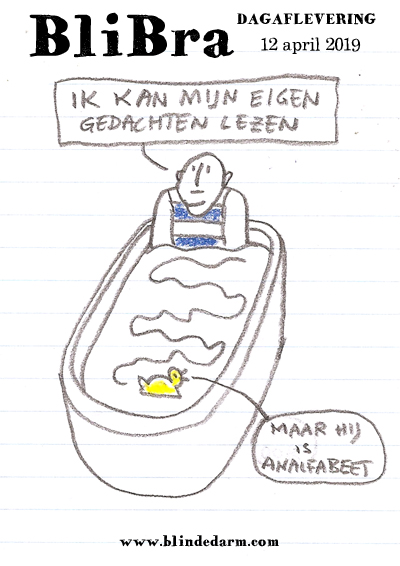 BliBra
DAGAFLEVERING
12 april 2019
IK KAN MIJN EIGEN
GEDACHTEN LEZEN
MAAR HIJ
IS
ANALFABEET
www.blindedarm.com